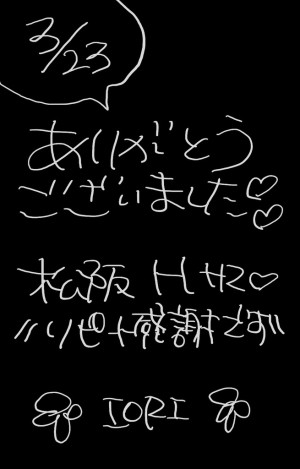 3/23
ありがとう
ございました♡♡
松阪 H♡
〃リピ感謝です〃
IORI